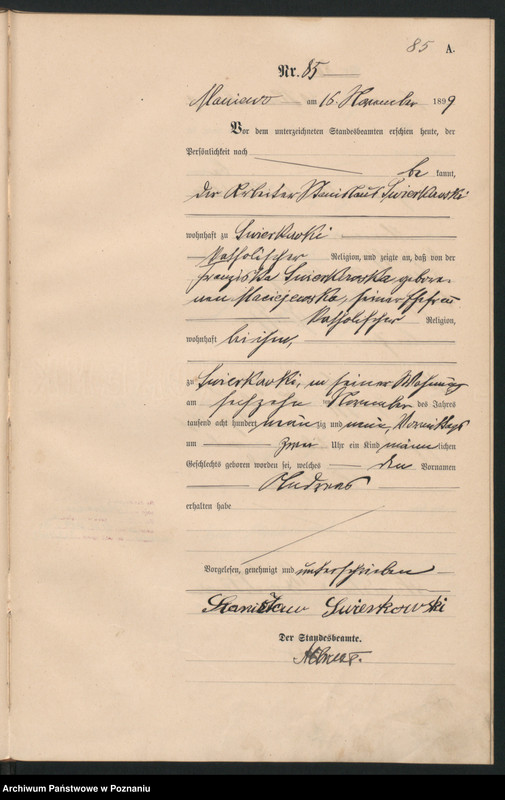 85 A.
Nr. 85
Maniewo am 16. November 1899
Vor dem unterzeichneten Standesbeamten erschien heute, der
Persönlichkeit nach
be kannt,
der Arbeiter Stanislaus Swierkowski
wohnhaft zu Swierkowki
katholischer Religion, und zeigte an, daß von der
Franziska Swierkowska, gebore-
nen Maciejewska, seiner Ehefrau
katholischer Religion,
wohnhaft bei ihm,
zu Swierkowki, in seiner Wohnung
am sechzehn ten November des Jahres
tausend acht hundert neun zig und neun, Vormittags
um zwei Uhr ein Kind männ lichen
Geschlechts geboren worden sei, welches den Vornamen
Andreas
erhalten habe
Vorgelesen, genehmigt und unterschrieben
Stanisław Swierkowski
Der Standesbeamte.
Archiwum Państwowe w Poznaniu